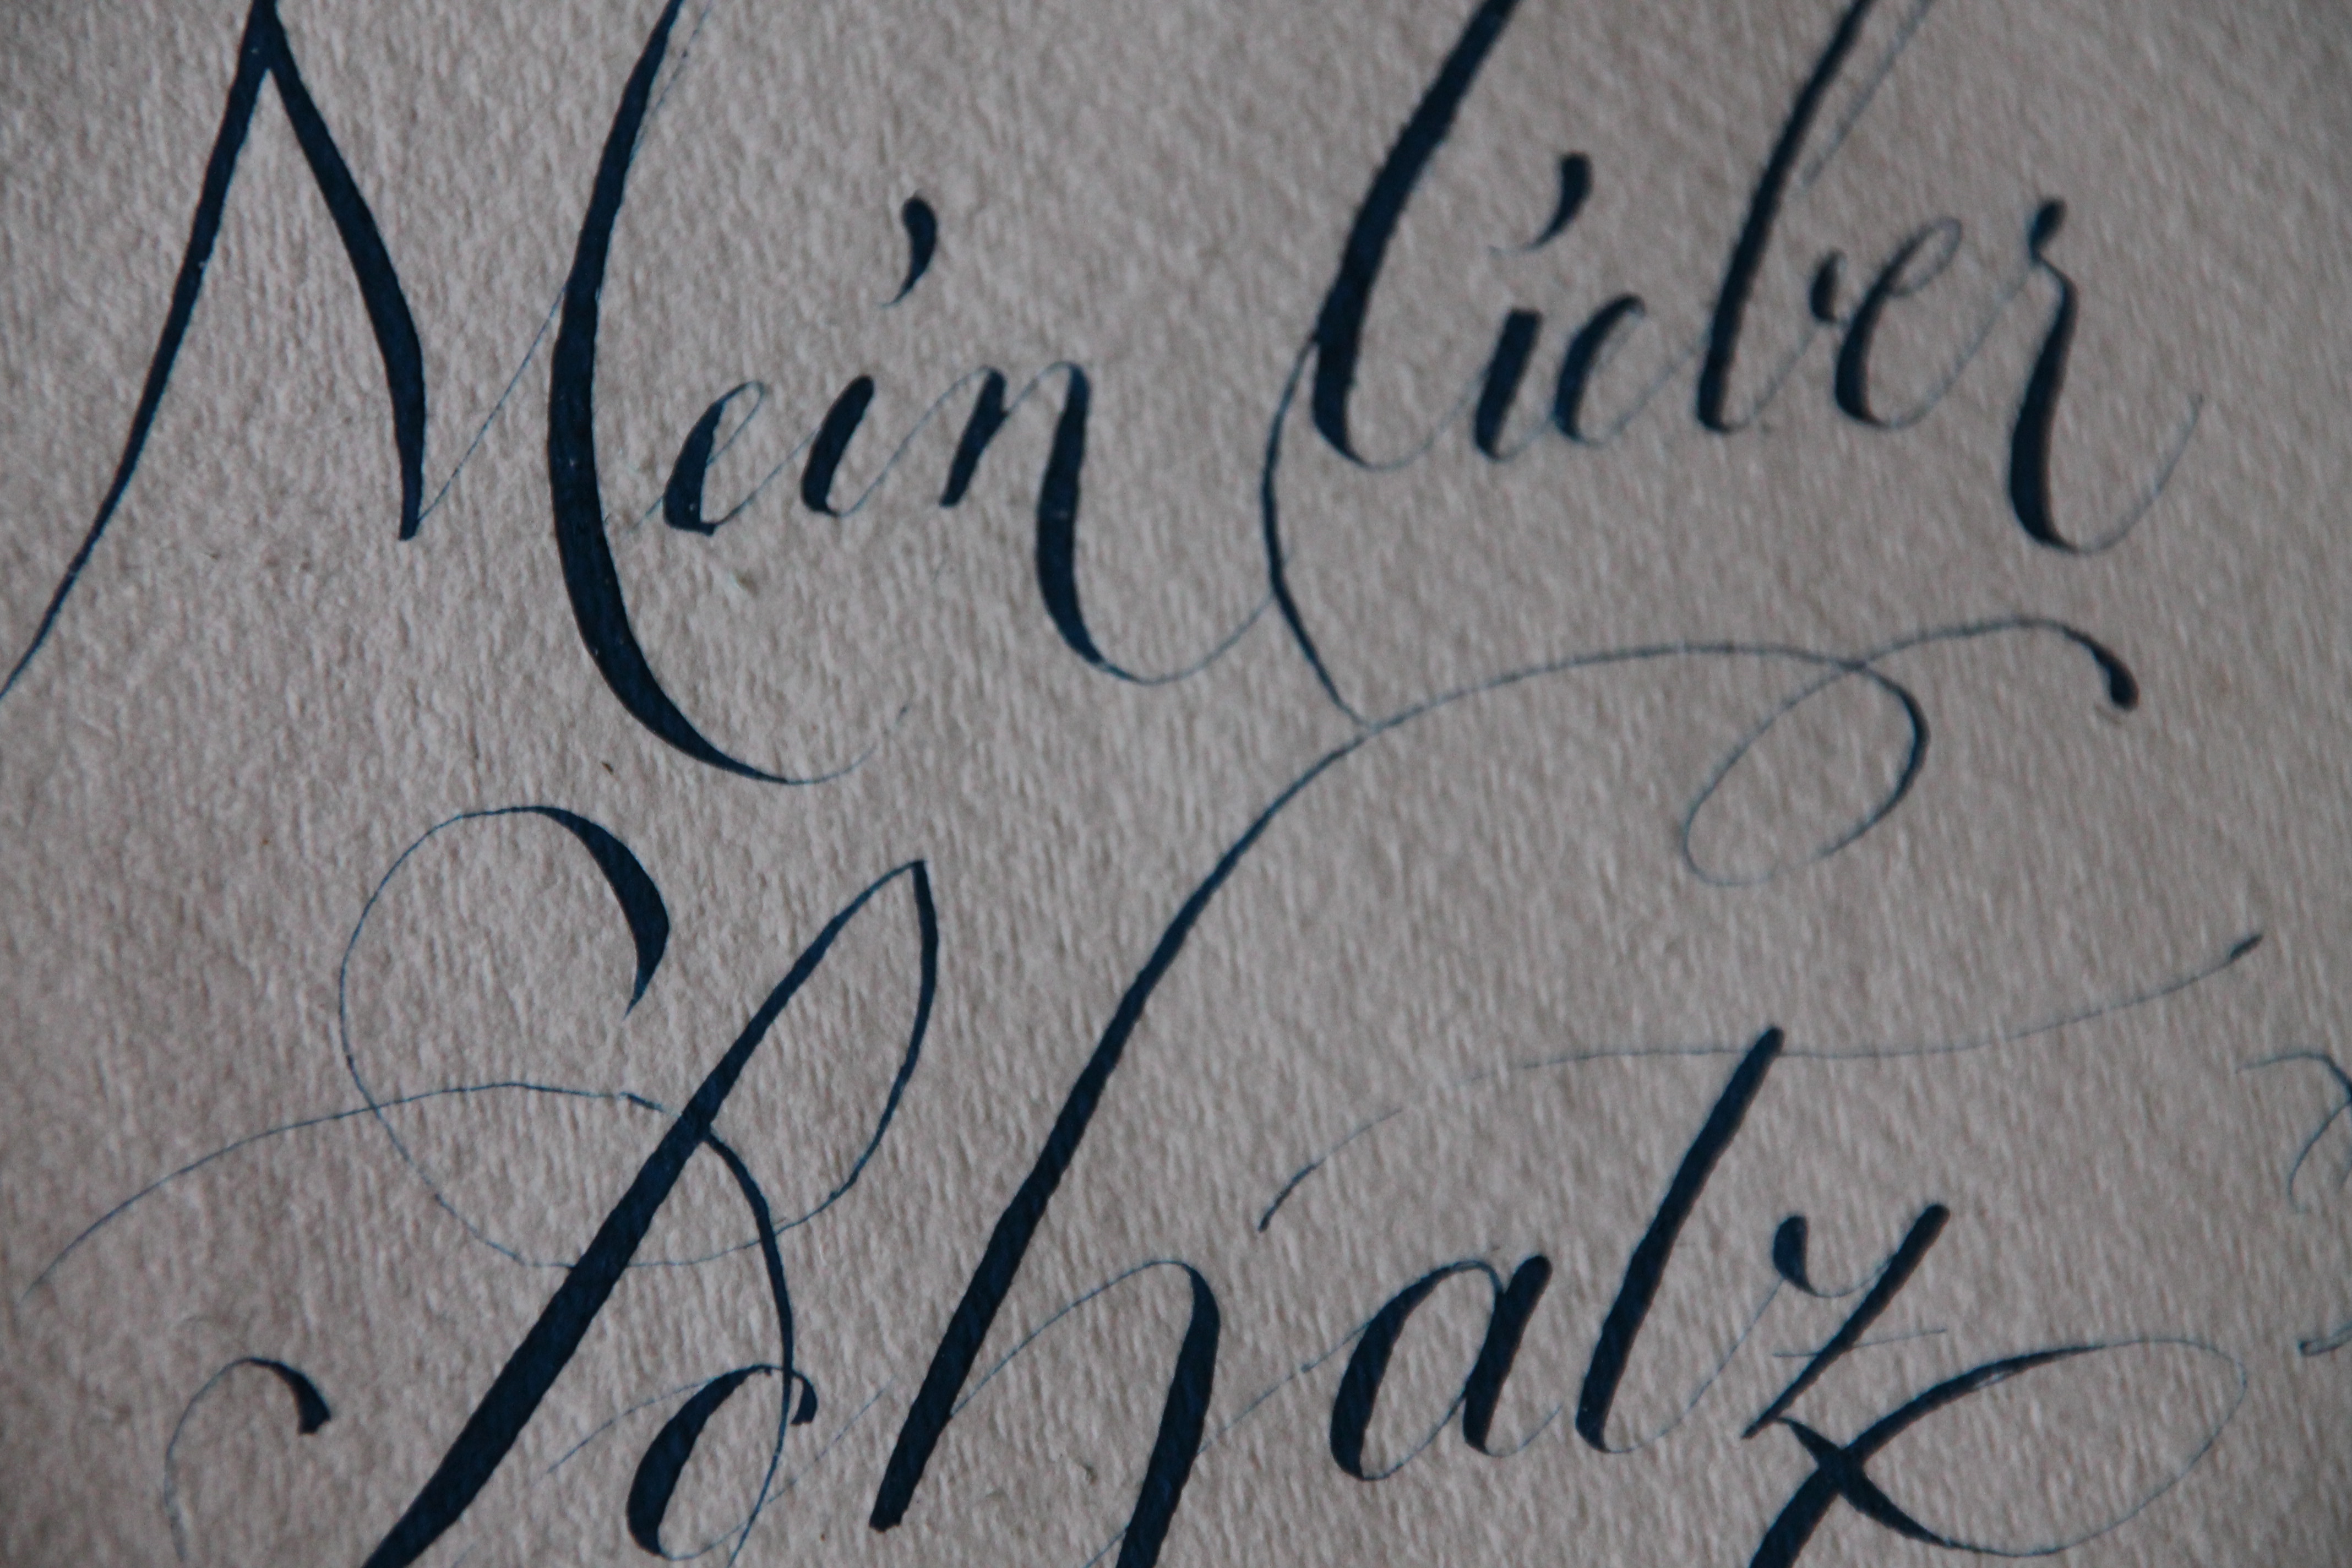 Mein lieber
Schatz